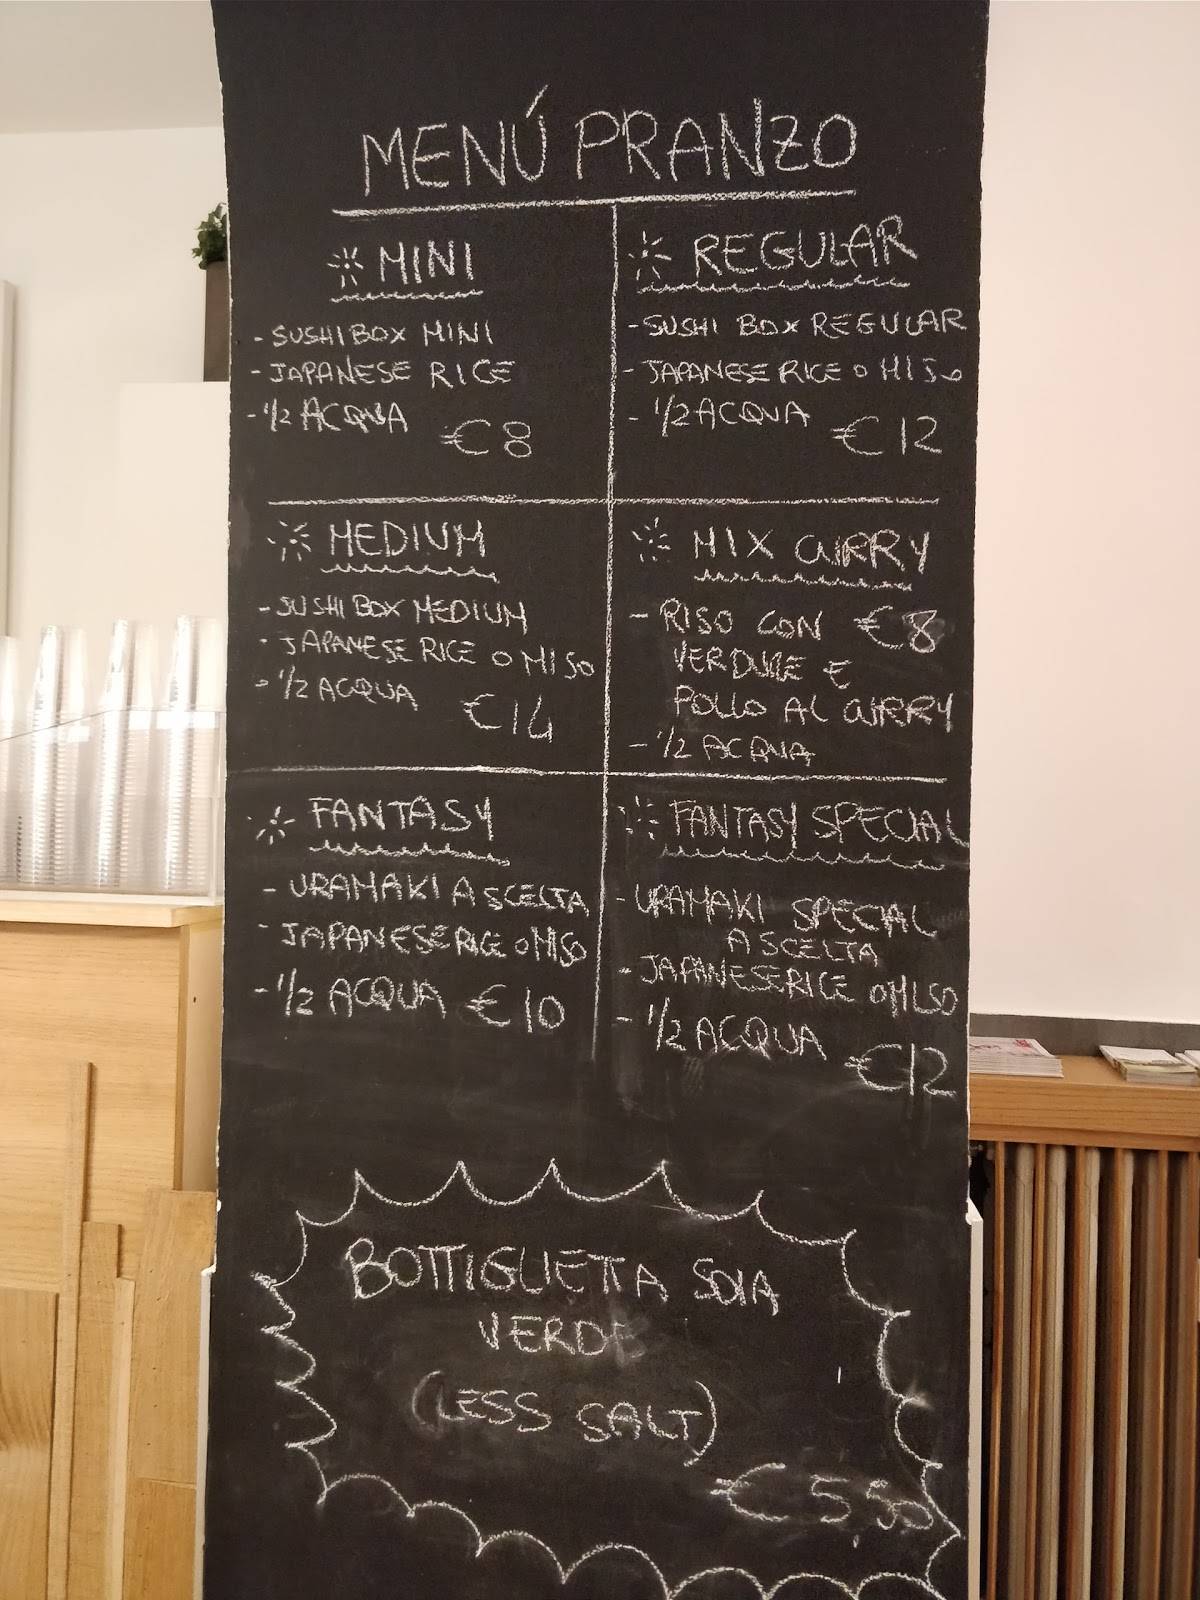 MENÚ PRANZO
MINI
- SUSHI BOX MINI
- JAPANESE RICE
- 1/2 ACQUA €8
REGULAR
- SUSHI BOX REGULAR
- JAPANESE RICE O MISO
- 1/2 ACQUA €12
MEDIUM
- SUSHI BOX MEDIUM
- JAPANESE RICE O MISO
- 1/2 ACQUA €14
MIX CURRY
- RISO CON €8
VERDURE E
POLLO AL CURRY
- 1/2 ACQUA
FANTASY
- URAMAKI A SCELTA
- JAPANESE RICE O MISO
- 1/2 ACQUA €10
FANTASY SPECIAL
- URAMAKI SPECIAL
A SCELTA
- JAPANESE RICE O MISO
- 1/2 ACQUA
€12
BOTTIGLIETTA SOIA
VERDE
(LESS SALT)
€5,50